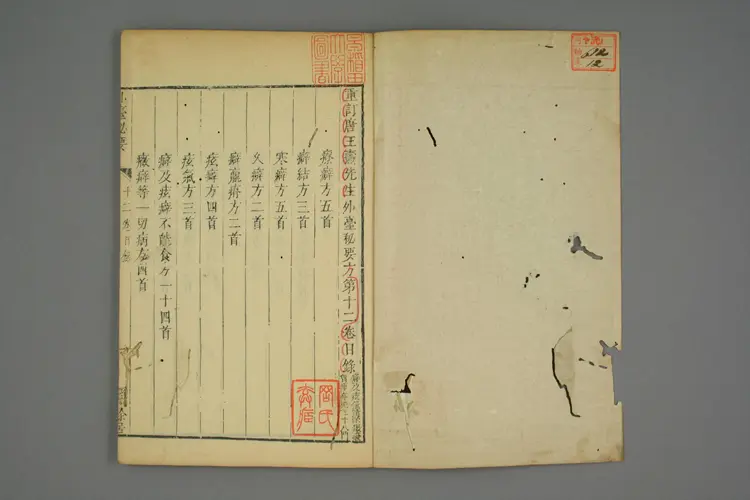 重訂唐王燾先生外臺秘要方第十二卷目錄
療癖方五首
癖結方三首
寒癖方五首
久癖方二首
癖羸瘠方二首
痃癖方四首
痃氣方三首
癖及痃癖不能食方一十四首
痃癖等一切病方四首
外臺秘要
十二卷目錄
12